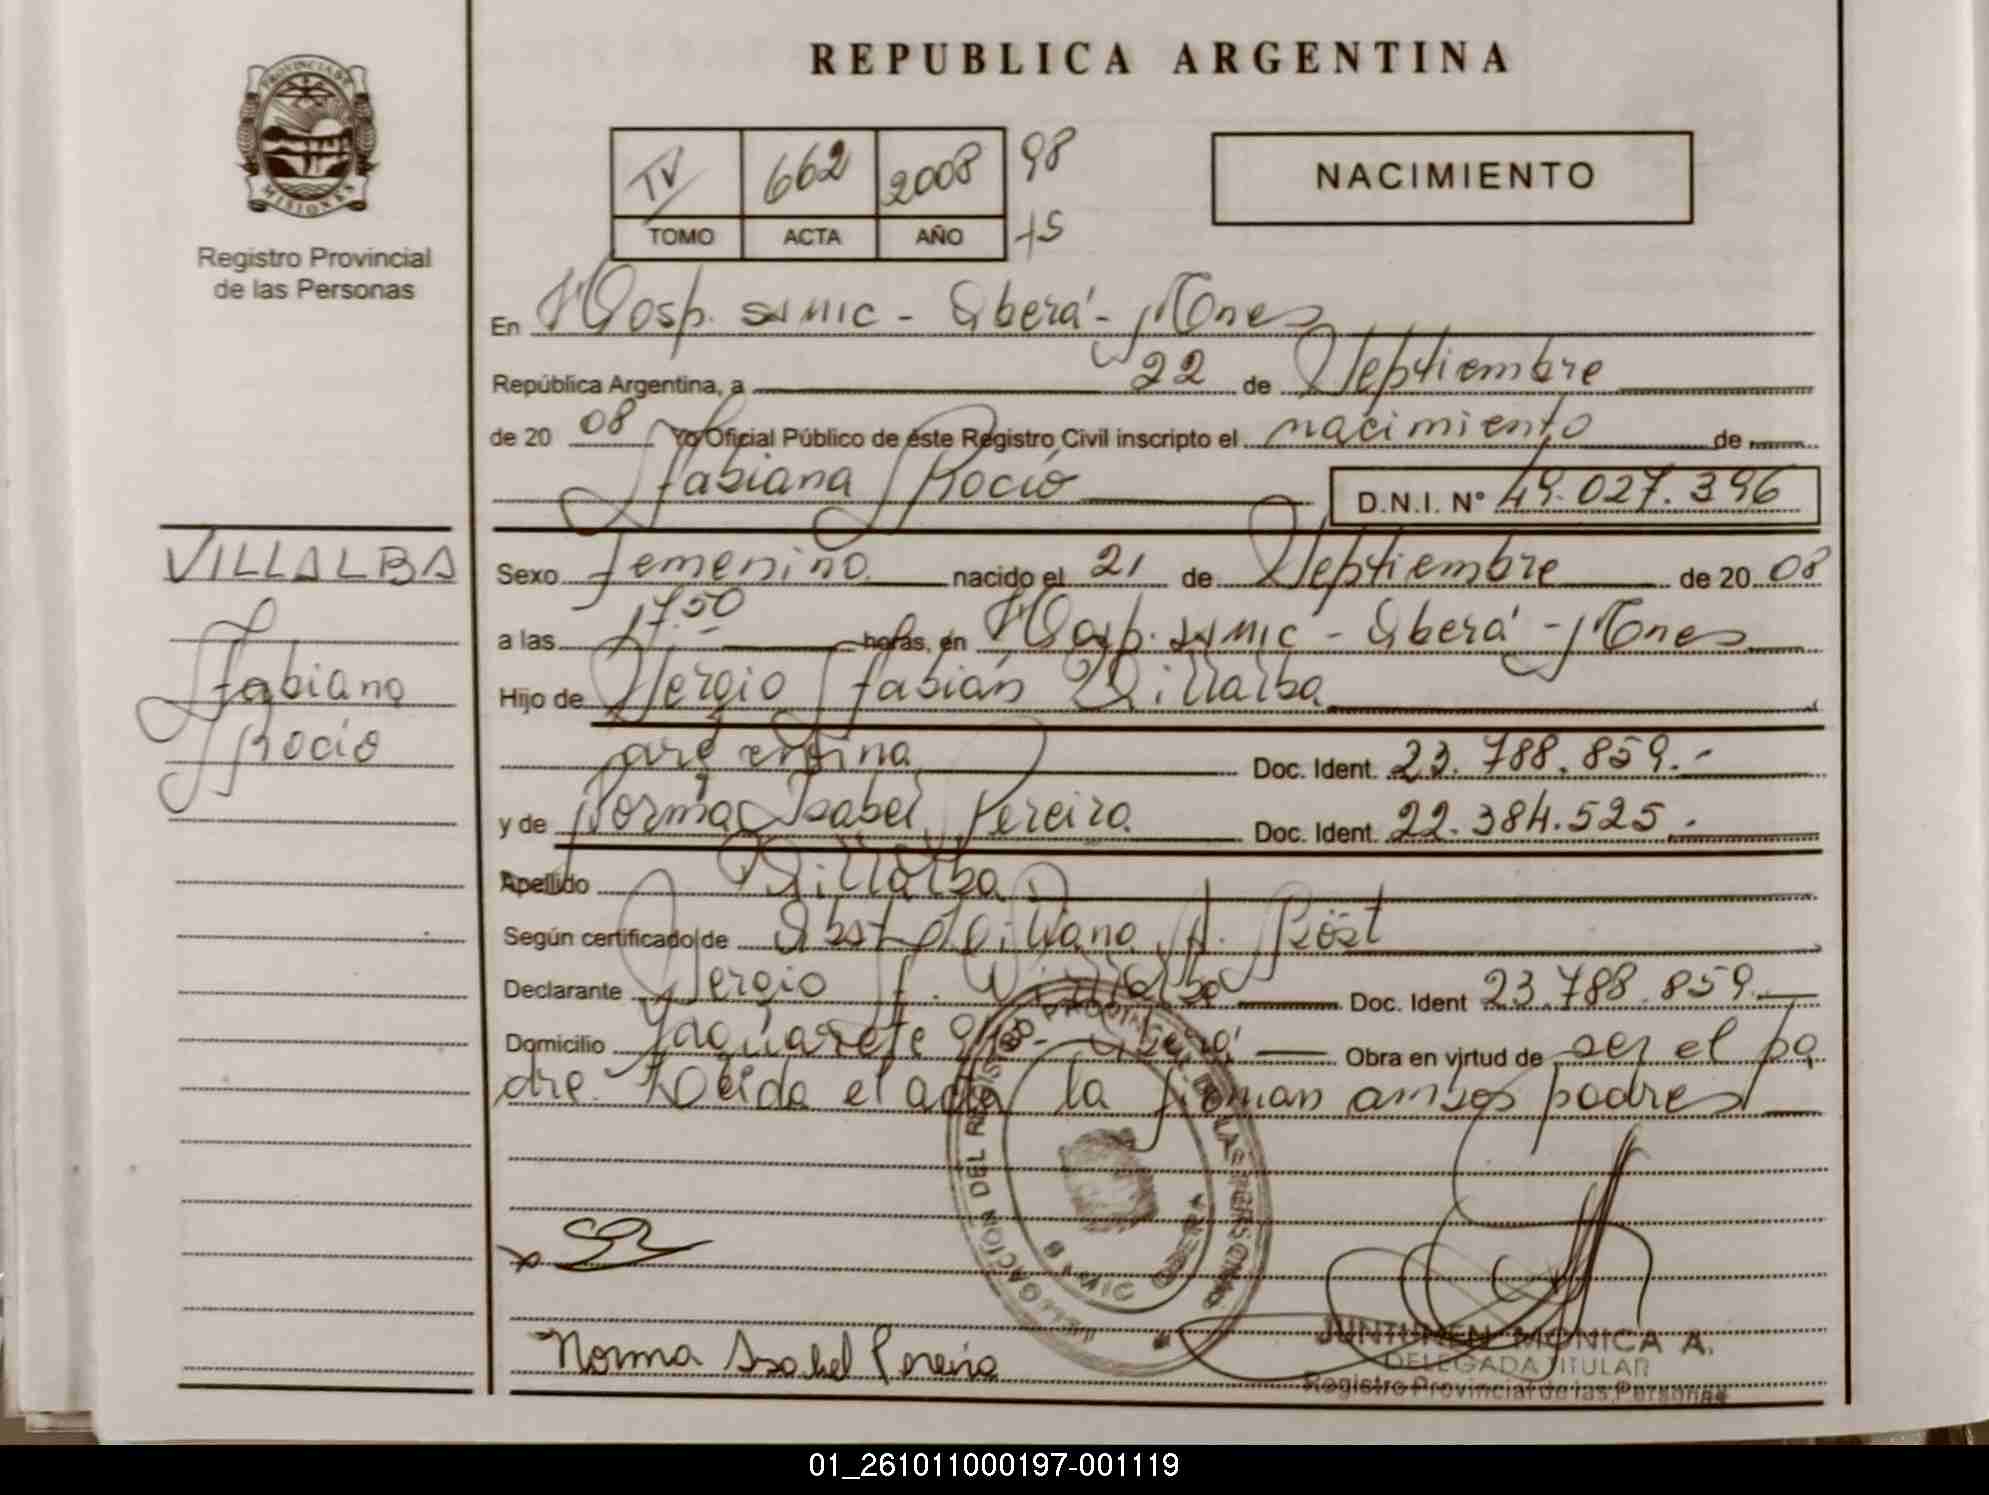 REPUBLICA ARGENTINA
PROVINCIA DE
MISIONES
Registro Provincial
de las Personas
TV 662 2008 98
TOMO ACTA AÑO +5
NACIMIENTO
En Hosp. SAMIC - Oberá - Mones
República Argentina, a 22 de Septiembre
de 20 08 Yo Oficial Público de éste Registro Civil inscripto el nacimiento de
Fabiana Rocío D.N.I. N° 49.027.396
VILLALBA
Fabiana
Rocío
Sexo femenino nacido el 21 de Septiembre de 20 08
a las 17.50 horas, en Hosp. SAMIC - Oberá - Mones
Hijo de Sergio Fabián Villalba
argentina Doc. Ident. 23.788.859.-
y de Norma Isabel Pereira Doc. Ident. 22.384.525.-
Apellido Villalba
Según certificado de Obst. Liliana A. Röst
Declarante Sergio F. Villalba Doc. Ident 23.788.859
Domicilio Yaguareté - Oberá Obra en virtud de ser el pa
dre. Leída el acta la firman ambos padres
Norma Isabel Pereira
JUNTUNEN MONICA A.
DELEGADA TITULAR
Registro Provincial de las Personas
01_261011000197-001119